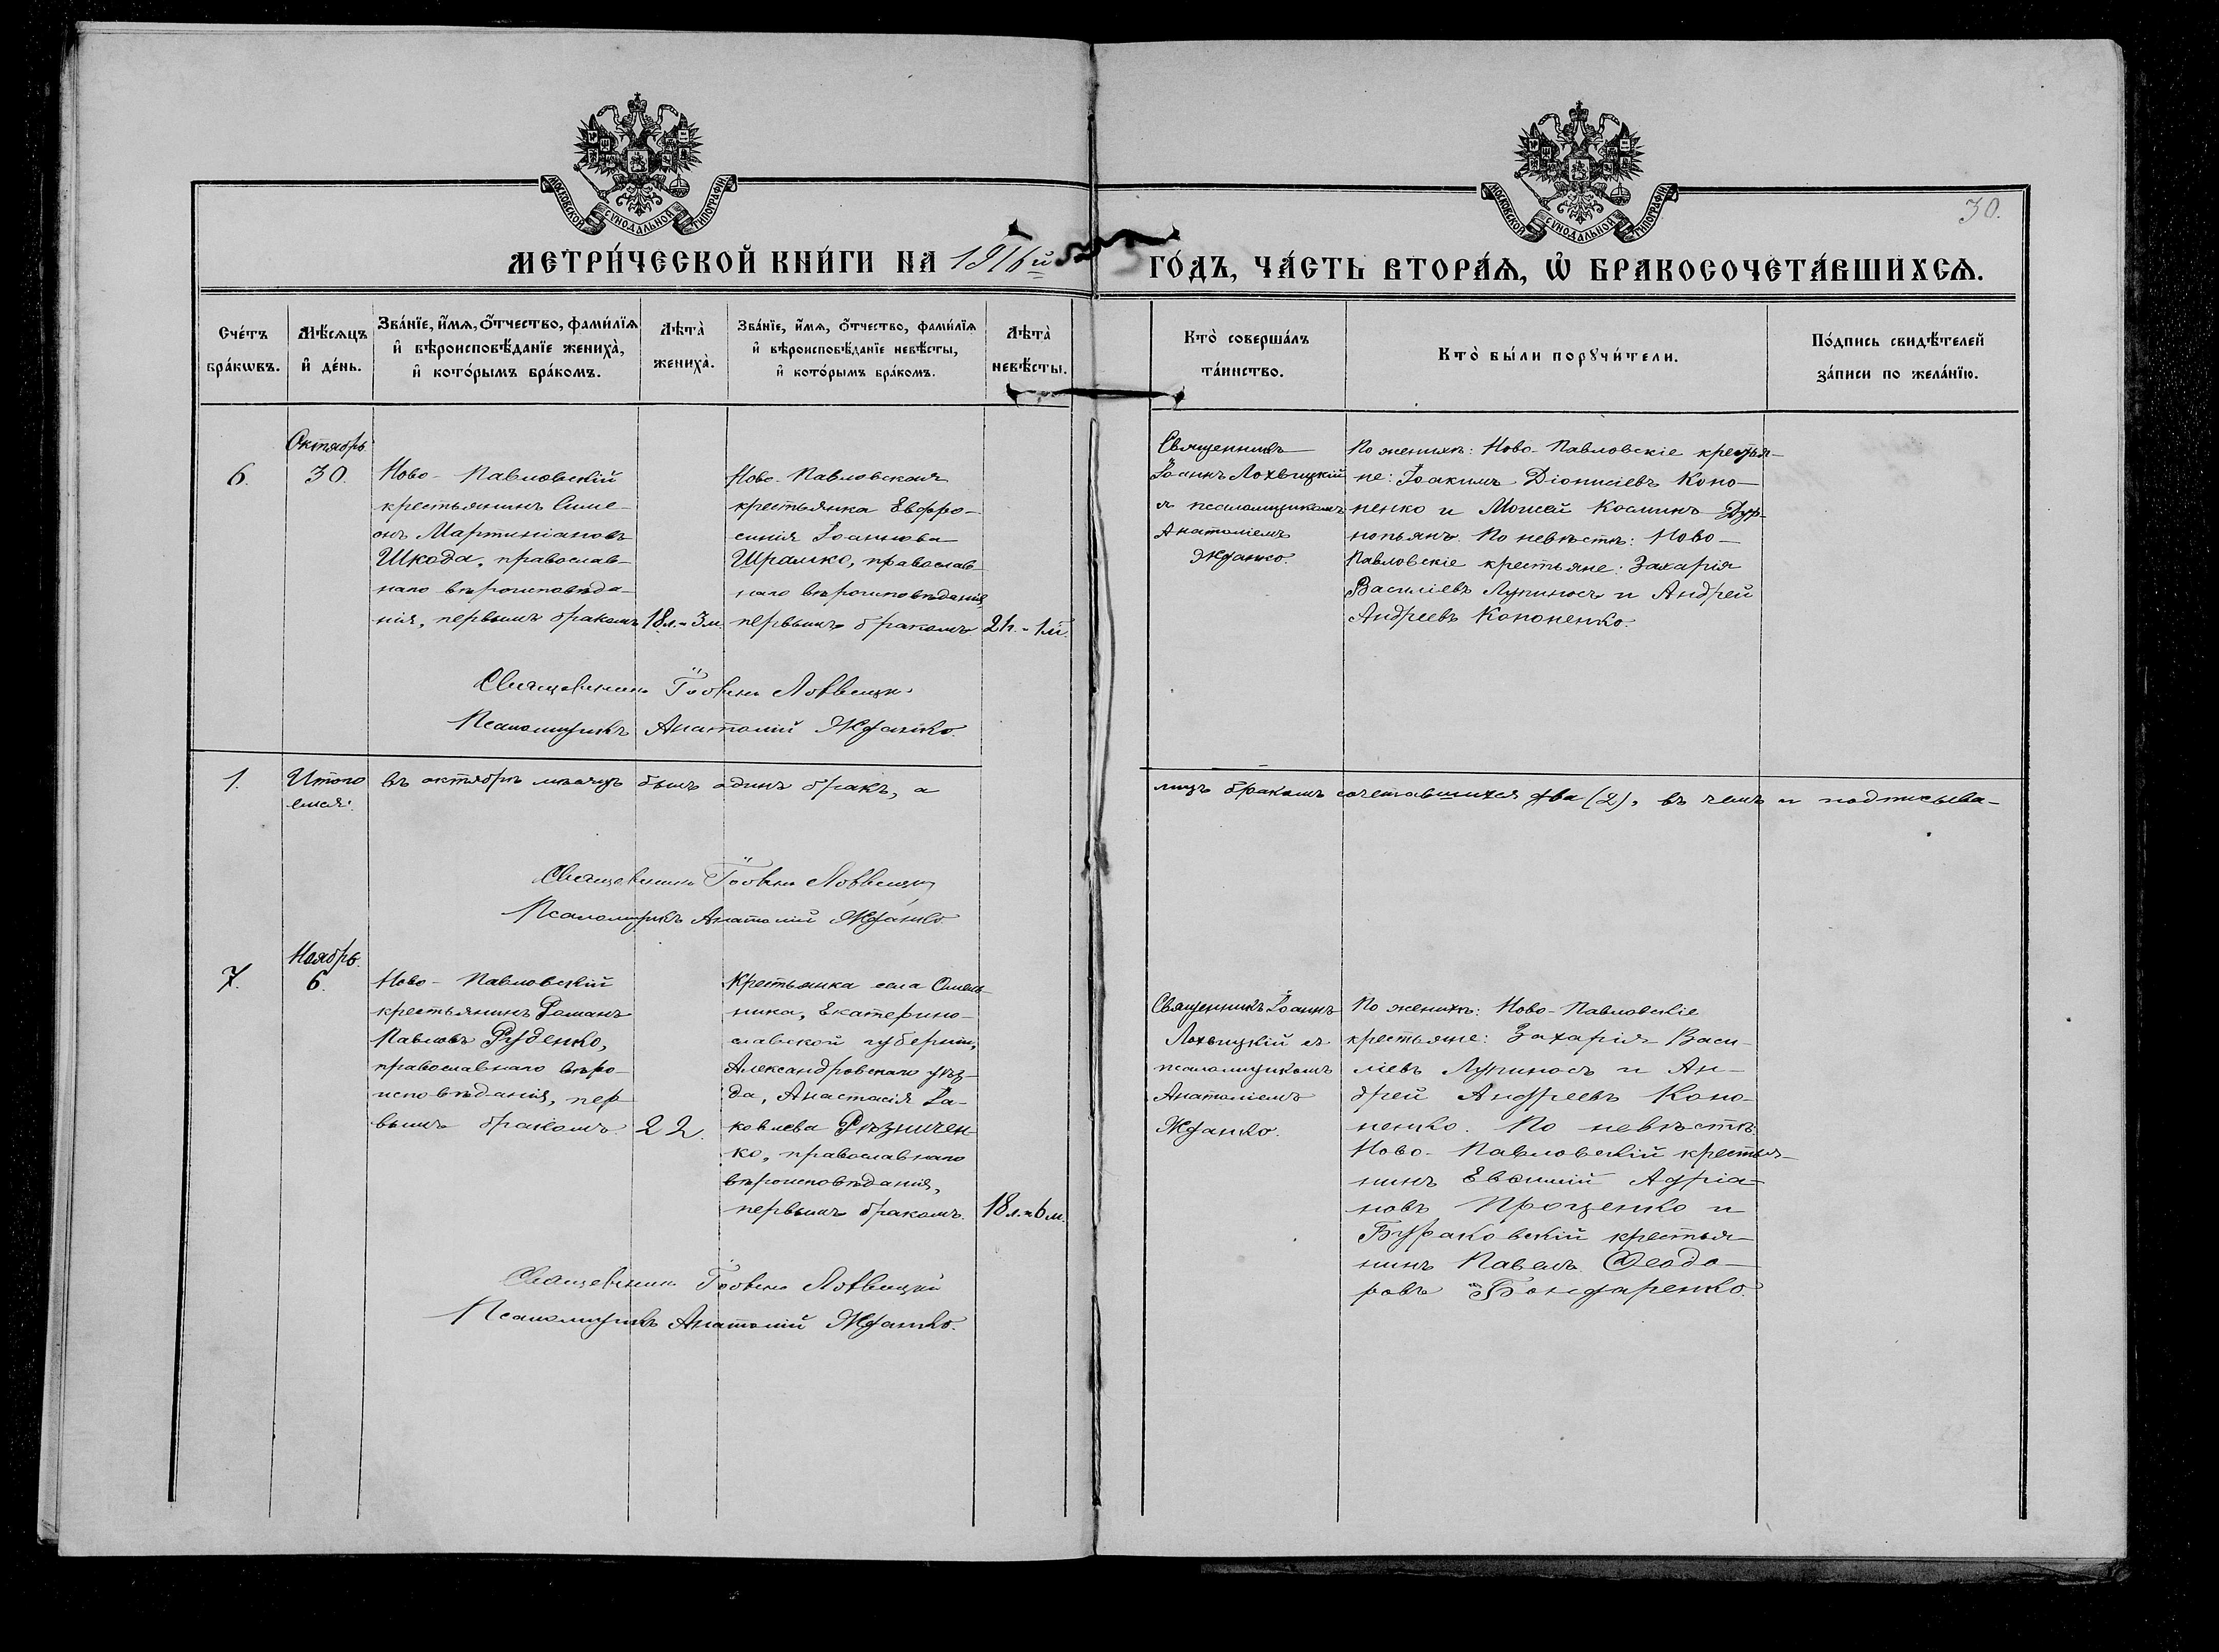 МОСКОВСКОЙ СѴНОДАЛЬНОЙ ТИПОГРАФІИ
МОСКОВСКОЙ СѴНОДАЛЬНОЙ ТИПОГРАФІИ
30.
МЕТРИ́ЧЕСКОЙ КНИ́ГИ НА 1916й
ГО́ДЪ, ЧА́СТЬ ВТОРА́Ѧ, Ѡ҆ БРАКОСОЧЕТА́ВШИХСѦ.
Сче́тъ бра́кѡвъ.
Мѣ́сѧцъ и҆ де́нь.
Зва́нїе, и҆́мѧ, ѻ҆́тчество, фами́лїѧ и҆ вѣроисповѣ́данїе жениха̀, и҆ кото́рымъ бра́комъ.
Лѣта̀ жениха̀.
Зва́нїе, и҆́мѧ, ѻ҆́тчество, фами́лїѧ и҆ вѣроисповѣ́данїе невѣ́сты, и҆ кото́рымъ бра́комъ.
Лѣта̀ невѣ́сты.
Кто̀ соверша́лъ та́инство.
Кто̀ бы́ли порꙋчи́тели.
По́дпись свидѣ́телей за́писи по жела́нїю.
6.
Октябрь.
30.
Ново-Павловскій
крестьянинъ Симе-
онъ Мартиніановъ
Шкода, православ-
наго вѣроисповѣда-
нія, первымъ бракомъ
18 л.-3 м.
Ново-Павловская
крестьянка Евфро-
синія Іоаннова
Шрамко, православ-
наго вѣроисповѣданія,
первымъ бракомъ
Священникъ
Іоаннъ Лохвицкій
съ псаломщикомъ
Анатоліемъ
Жданко.
По женихѣ: Ново-Павловскіе крестья-
не: Іоакимъ Діонисіевъ Коно-
ненко и Моисей Косминъ
По невѣстѣ: Ново-
Павловскіе крестьяне: Захарія
Василіевъ Лупиносъ и Андрей
Андреевъ Кононенко.
Священникъ Іоаннъ Лохвицкій
Псаломщикъ Анатолій Жданко.
1.
Итого въ октябрѣ мѣсяцѣ былъ одинъ бракъ, а лицъ бракомъ сочетавшихся два (2), въ чемъ и подписыва-
емся:
Священникъ Іоаннъ Лохвицкій
Псаломщикъ Анатолій Жданко
7.
Ноябрь.
6.
Ново-Павловскій
крестьянинъ Романъ
Павловъ Руденко,
православнаго вѣро-
исповѣданія, пер-
вымъ бракомъ.
22.
Крестьянка села Омель-
ника, Екатерино-
славской губерніи,
Александровскаго уѣз-
да, Анастасія Іа-
ковлева Рѣзничен-
ко, православнаго
вѣроисповѣданія,
первымъ бракомъ.
18 л. 6 м.
Священникъ Іоаннъ
Лохвицкій съ
псаломщикомъ
Анатоліемъ
Жданко.
По женихѣ: Ново-Павловскіе
крестьяне: Захарія Васи-
ліевъ Лупиносъ и Ан-
дрей Андреевъ Коно-
ненко. По невѣстѣ:
Ново-Павловскій крестья-
нинъ Евѳимій Адріа-
новъ Проценко и
Бураковскій крестья-
нинъ Павелъ Ѳеодо-
ровъ Бондаренко.
Священникъ Іоаннъ Лохвицкій
Псаломщикъ Анатолій Жданко.